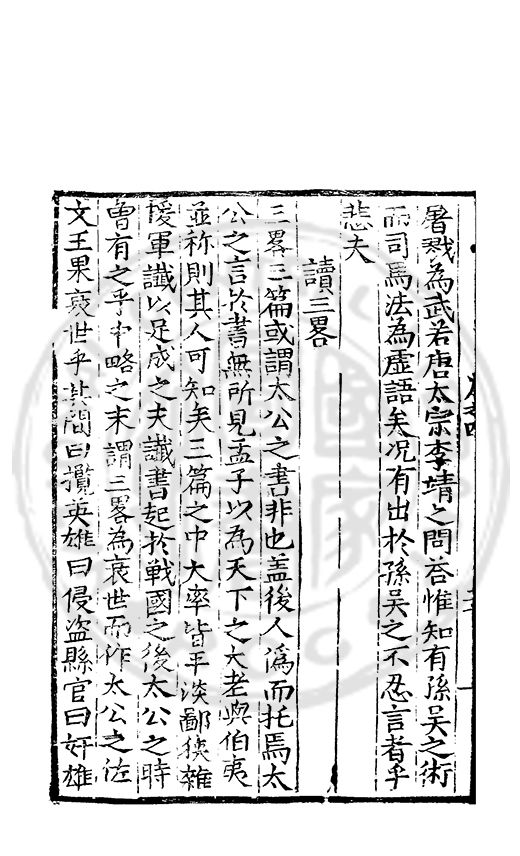 暑戮為武若唐太宗李靖之問荅惟知有孫吴之術
而司馬法為虚語矣况有出於孫吴之不忍言者乎
悲夫
讀三畧
三畧三篇或謂太公之書非也盖後人僞而托焉太
公之言於書無所見孟子以為天下之大老與伯夷
並称則其人可知矣三篇之中大率皆平淡鄙狹雜
援軍讖以足成之夫讖書起於戰國之後太公之時
曾有之乎中略之末謂三畧為衰世而作太公之佐
文王果衰世乎其間曰攬英雄曰侵盗縣官曰奸雄